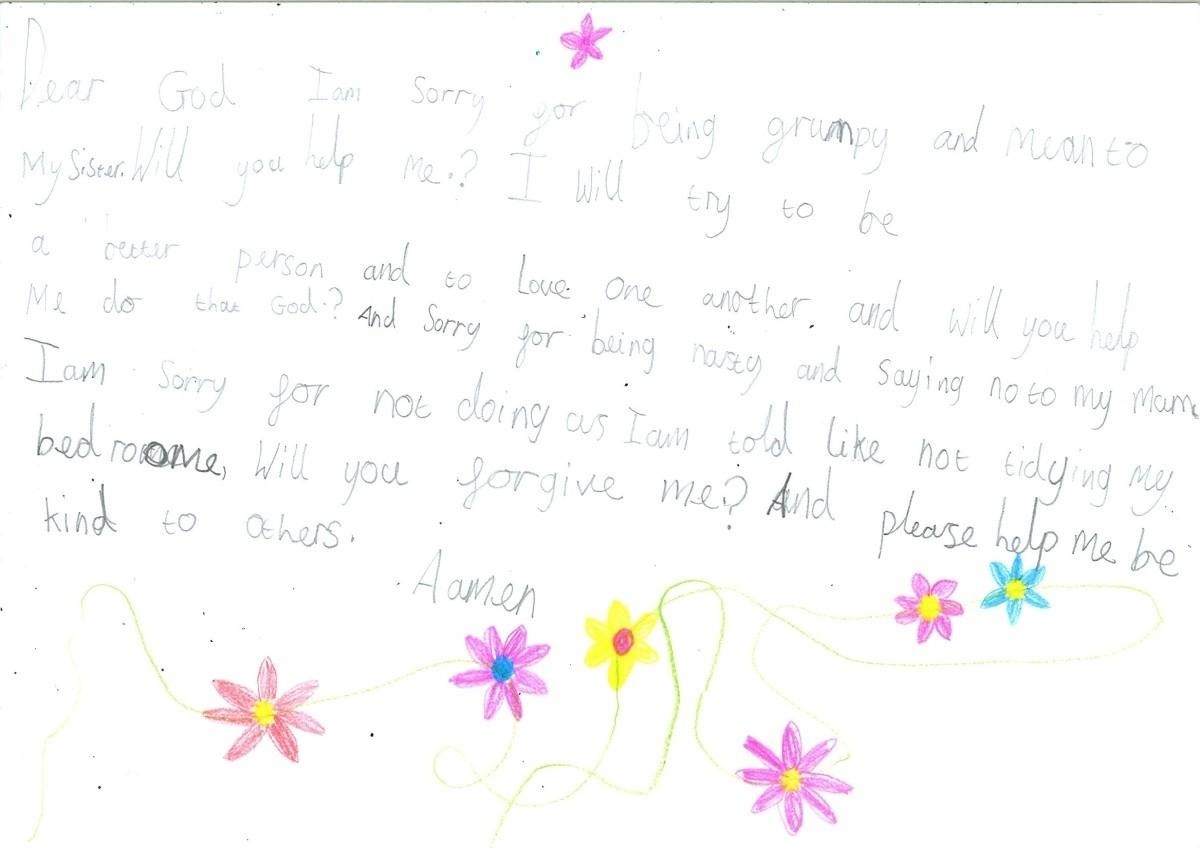 Dear God I am Sorry for being grumpy and mean to
My Sister. Will you help me.? I will try to be
a better person and to Love one another. and will you help
Me do that God.? And Sorry for being nasty and Saying no to my Mam
I am sorry for not doing as I am told like not tidying my
bedroome, Will you forgive me? And please help me be
kind to others.
Aamen